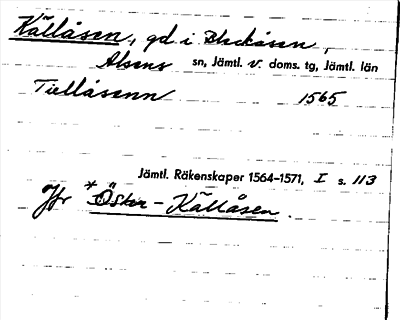 Källåsen, gd i Blackåsen,
Alsens sn, Jämtl. v. doms. tg, Jämtl. län
Tiellåsenn 1565
Jämtl. Räkenskaper 1564–1571, I s. 113
Jfr *Öster-Källåsen.